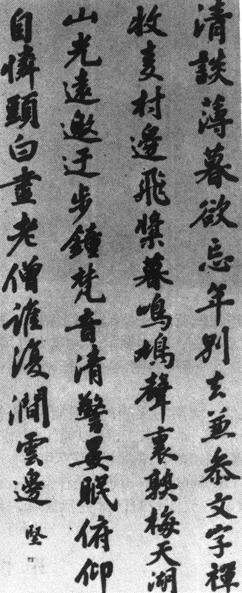 清談薄暮欲忘年別去兼參文字禪
牧麦村邊飛槳暮鳴鳩聲裏熟梅天湖
山光遠邀迂步鍾梵音清警晏眠俯仰
自憐頭白盡老僧誰復澗雲邊 堅